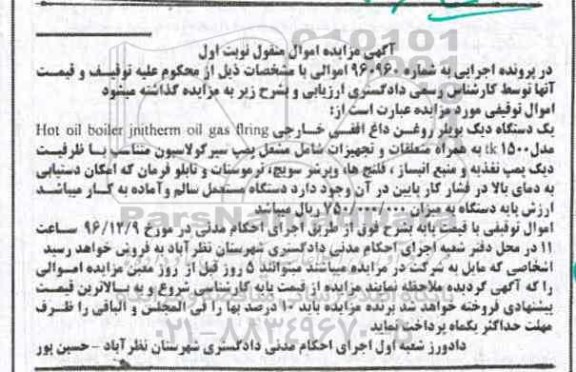 آگهی مزایده اموال منقول نوبت اول
در پرونده اجرایی به شماره ۹۶۰۹۶۰ اموالی با مشخصات ذیل از محکوم علیه توقیف و قیمت
آنها توسط کارشناس رسمی دادگستری ارزیابی و بشرح زیر به مزایده گذاشته میشود
اموال توقیفی مورد مزایده عبارت است از:
یک دستگاه دیگ بویلر روغن داغ افقی خارجی Hot oil boiler jnitherm oil gas flring
مدل tk۱۵۰۰ به همراه متعلقات و تجهیزات شامل مشعل پمپ سیرکولاسیون متناسب با ظرفیت
دیگ پمپ تغذیه و منبع انبساز ، فلنچ ها، وپرشر سویچ، ترموستات و تابلو فرمان که امکان دستیابی
به دمای بالا در فشار کار پایین در آن وجود دارد دستگاه مستعمل سالم وآماده به کار میباشد
ارزش پایه دستگاه به میزان ۷۵۰/۰۰۰/۰۰۰ ریال میباشد
اموال توقیفی با قیمت پایه بشرح فوق از طریق اجرای احکام مدنی در مورخ ۹۶/۱۲/۹ ساعت
۱۱ در محل دفتر شعبه اجرای احکام مدنی دادگستری شهرستان نظرآباد به فروش خواهد رسید
اشخاصی که مایل به شرکت در مزایده میباشند میتوانند ۵ روز قبل از روز معین مزایده اموالی
را که آگهی گردیده ملاحظه نمایند مزایده از قیمت پایه کارشناسی شروع و به بالاترین قیمت
پیشنهادی فروخته خواهد شد برنده مزایده باید ۱۰ درصد بها را فی المجلس و الباقی را ظرف
مهلت حداکثر یکماه پرداخت نماید
دادورز شعبه اول اجرای احکام مدنی دادگستری شهرستان نظرآباد - حسین پور
ParsNamadData
۰۲۱-۸۸۳۴۹۶۷۰